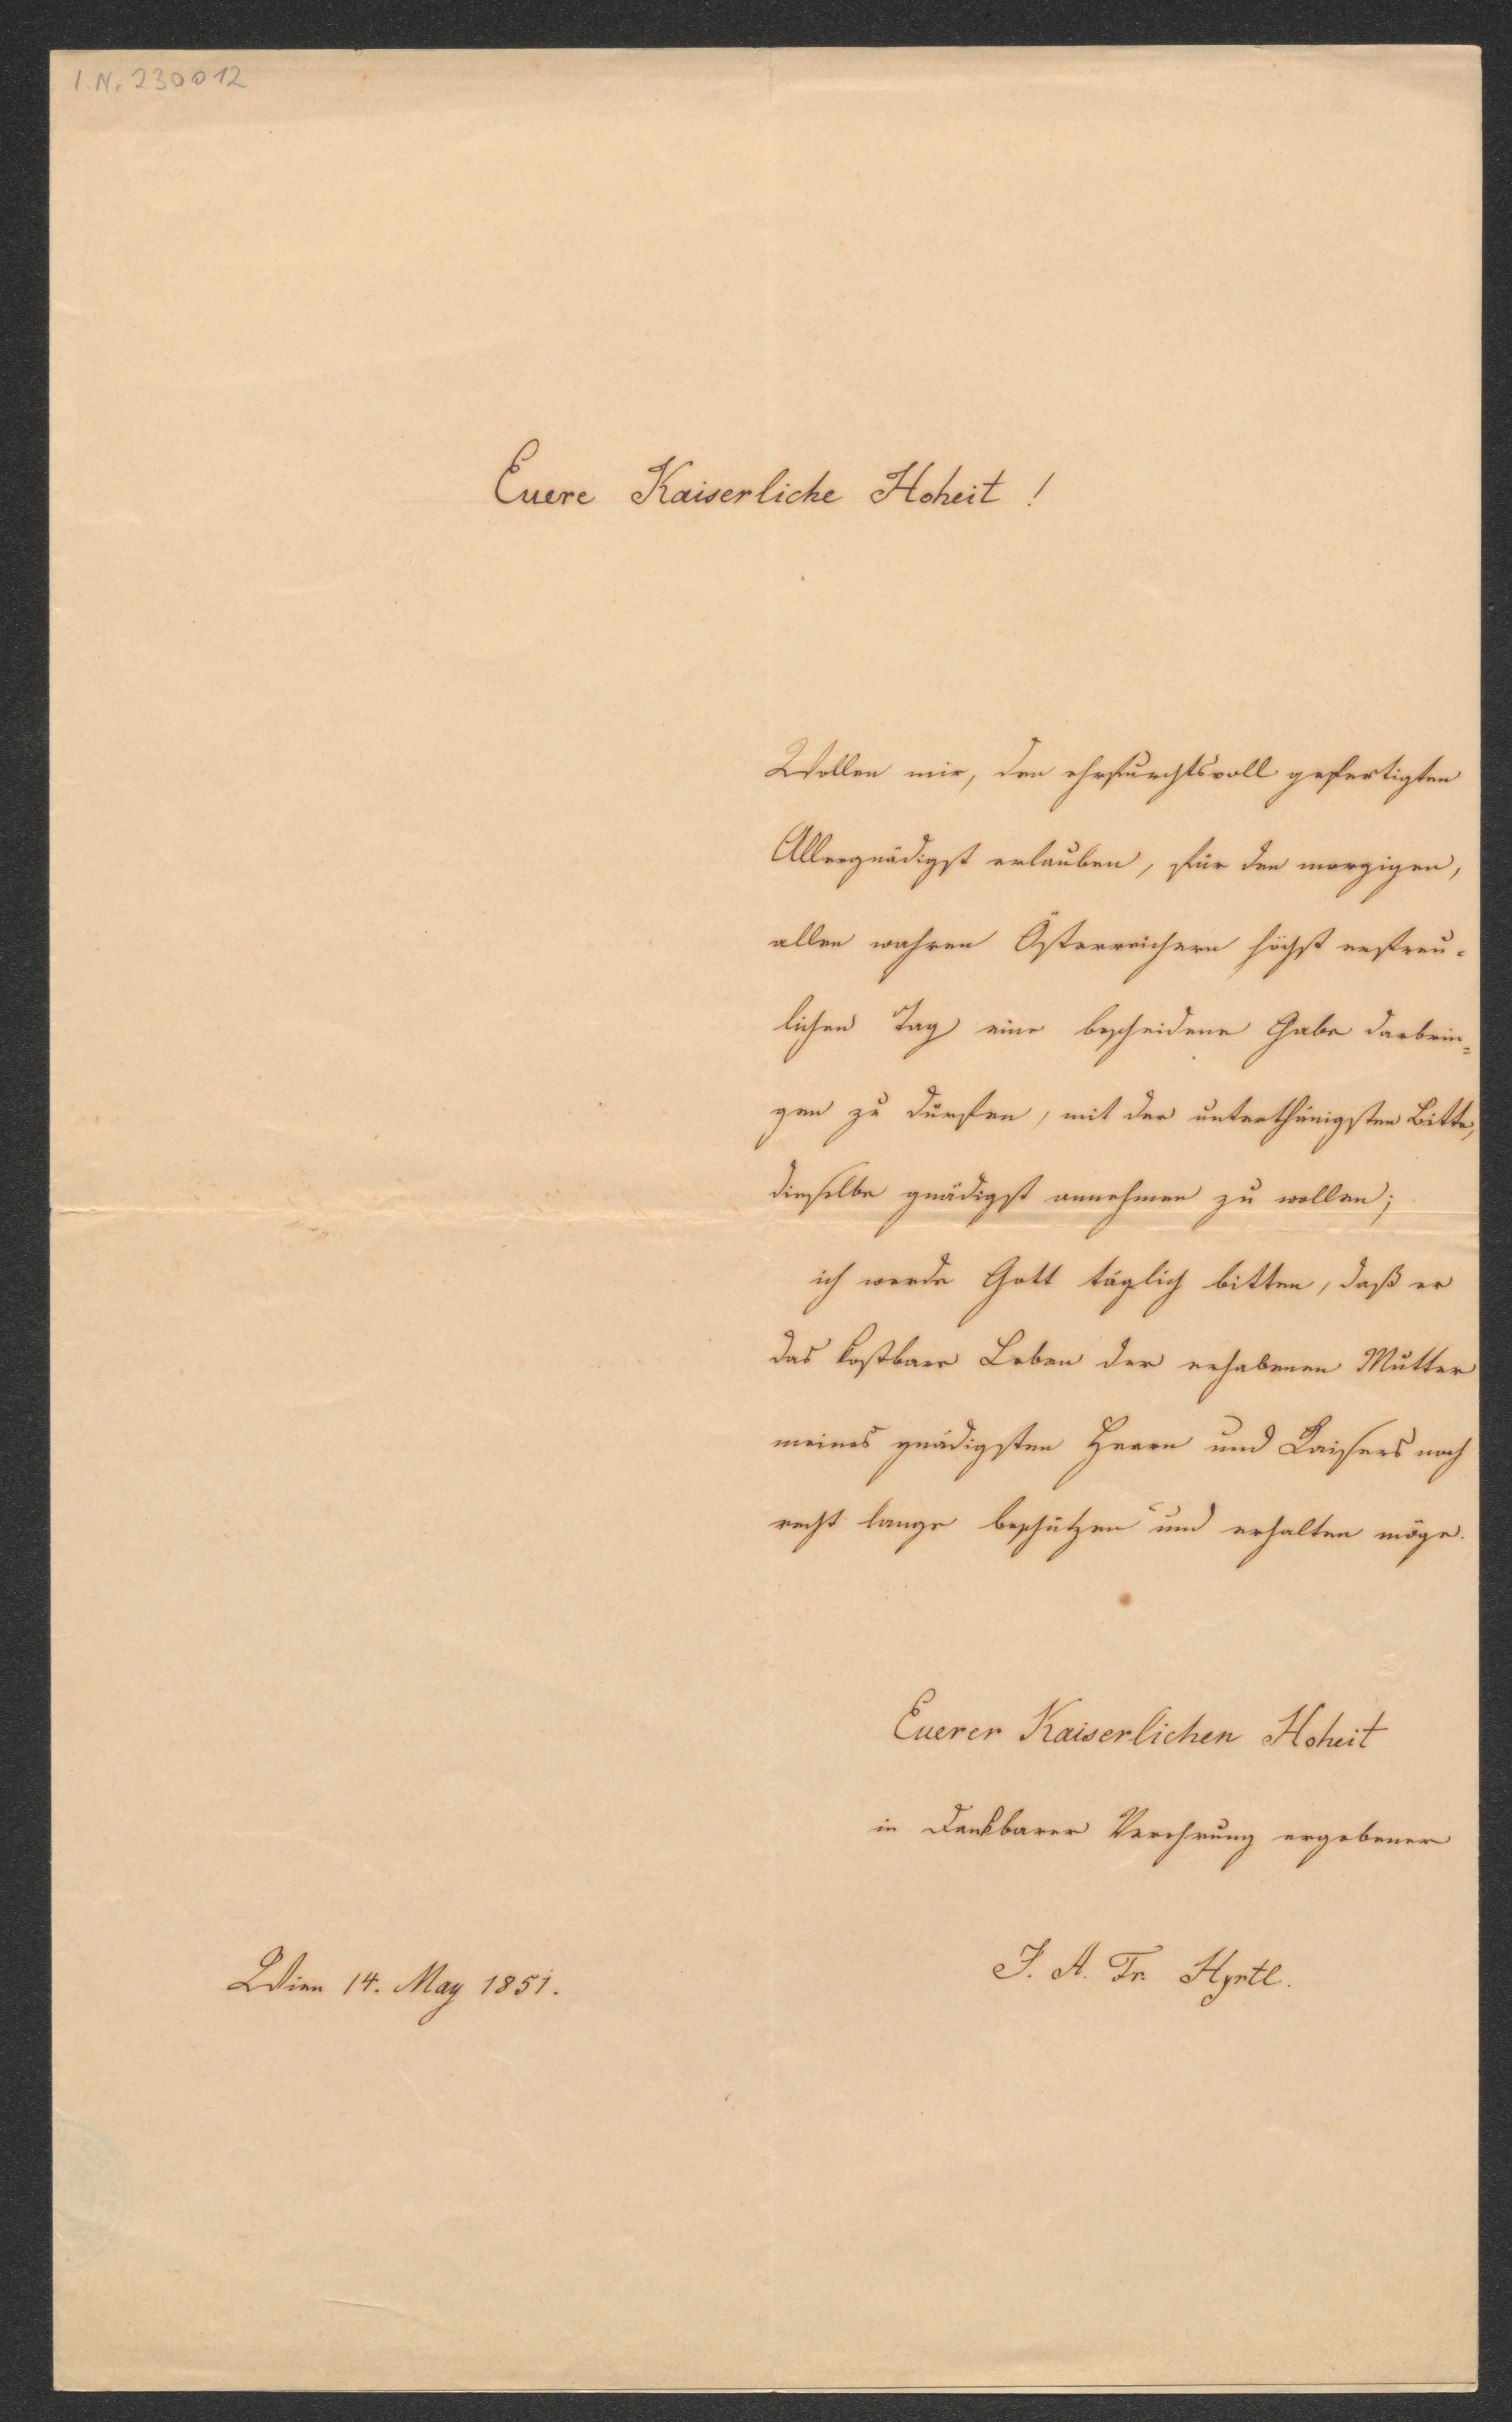 I.N. 230012
Euere Kaiserliche Hoheit!
Wollen mir, den ehrfurchtsvoll gefertigten
Allergnädigst erlauben, für den morgigen,
allen wahren Österreichern höchst erfreu-
lichen Tag eine bescheidene Gabe darbrin=
gen zu dürfen, mit der unterthänigsten Bitte,
dieselbe gnädigst annehmen zu wollen;
ich werde Gott täglich bitten, daß er
das kostbare Leben der erhabenen Mutter
meines gnädigsten Herrn und Kaisers noch
recht lange beschützen und erhalten möge.
Euerer Kaiserlichen Hoheit
in dankbarer Verehrung ergebener
J. A. Fr. Hyrtl.
Wien 14. May 1851.